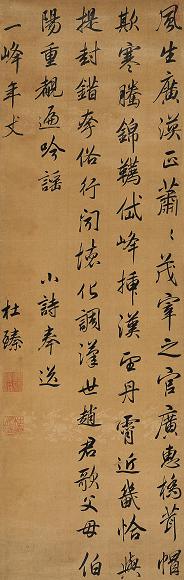 風生廣漢正蕭〻茂宰之官廣惠橋茸帽
欺寒騰錦韉岱峰插漢丹霄近畿恰與
提封錯俗行聞化調漢世趙君歌父母伯
陽重遍吟謠 小詩奉送
一峰年丈 杜臻